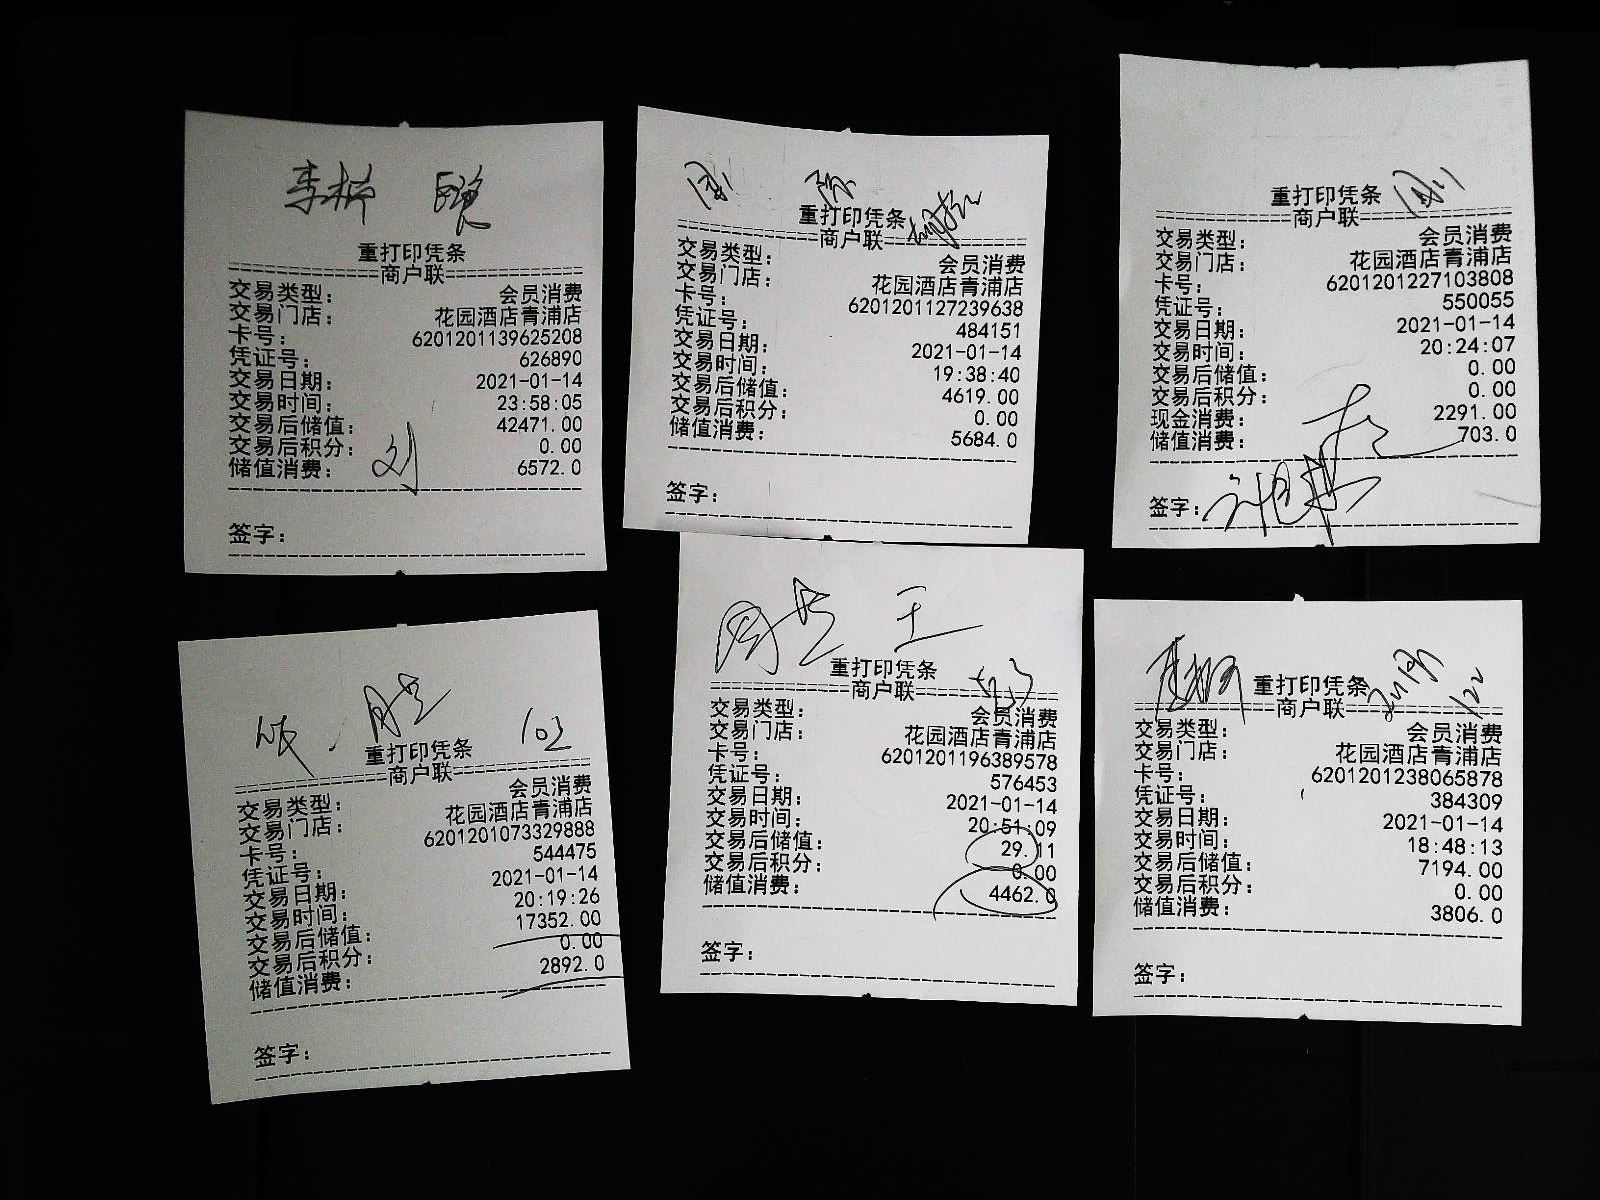 李
重打印凭条
商户联
交易类型： 会员消费
交易门店： 花园酒店青浦店
卡号： 6201201139625208
凭证号： 626890
交易日期： 2021-01-14
交易时间： 23:58:05
交易后储值： 42471.00
交易后积分： 0.00
储值消费： 6572.0
刘
签字：
重打印凭条
商户联
交易类型： 会员消费
交易门店： 花园酒店青浦店
卡号： 6201201127239638
凭证号： 484151
交易日期： 2021-01-14
交易时间： 19:38:40
交易后储值： 4619.00
交易后积分： 0.00
储值消费： 5684.0
签字：
重打印凭条
商户联
交易类型： 会员消费
交易门店： 花园酒店青浦店
卡号： 6201201227103808
凭证号： 550055
交易日期： 2021-01-14
交易时间： 20:24:07
交易后储值： 0.00
交易后积分： 0.00
现金消费： 2291.00
储值消费： 703.0
签字：
重打印凭条
商户联
交易类型： 会员消费
交易门店： 花园酒店青浦店
卡号： 6201201073329888
凭证号： 544475
交易日期： 2021-01-14
交易时间： 20:19:26
交易后储值： 17352.00
交易后积分： 0.00
储值消费： 2892.0
签字：
王
重打印凭条
商户联
交易类型： 会员消费
交易门店： 花园酒店青浦店
卡号： 6201201196389578
凭证号： 576453
交易日期： 2021-01-14
交易时间： 20:51:09
交易后储值： 29.11
交易后积分： 0.00
储值消费： 4462.0
签字：
重打印凭条
商户联
交易类型： 会员消费
交易门店： 花园酒店青浦店
卡号： 6201201238065878
凭证号： 384309
交易日期： 2021-01-14
交易时间： 18:48:13
交易后储值： 7194.00
交易后积分： 0.00
储值消费： 3806.0
签字：